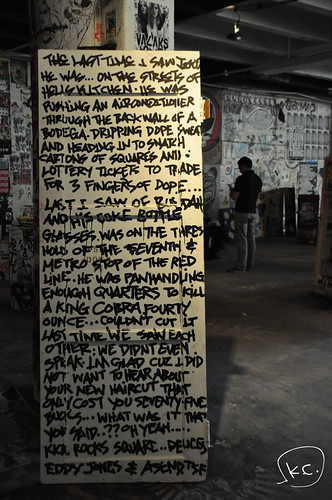 VAGAKS
THE LAST TIME I SAW
HE WAS... ON THE STREETS OF
HELLS KITCHEN. HE WAS
PUSHING AN AIRCONDITIONER
THROUGH THE BACK WALL OF A
BODEGA. DRIPPING DOPE SWEAT
AND HEADING IN TO SNATCH
CARTONS OF SQUARES AND
LOTTERY TICKETS TO TRADE
FOR 3 FINGERS OF DOPE...
LAST I SAW OF
AND HIS COKE BOTTLE
GLASSES WAS ON THE THRES
HOLD OF THE SEVENTH &
METRO STOP OF THE RED
LINE. HE WAS PANHANDLING
ENOUGH QUARTERS TO KILL
A KING COBRA FOURTY
OUNCE... COULDN'T CUT IT
LAST TIME WE SAW EACH
OTHER: WE DIDNT EVEN
SPEAK. I.M GLAD CUZ I DID
NOT WANT TO HEAR ABOUT
YOUR NEW HAIRCUT THAT
ONLY COST YOU SEVENTY-FIVE
BUCKS... WHAT WAS IT THAT
YOU SAID..?? OH YEAH....:
KICK ROCKS SQUARE. DEUCES
EDDY JONES &
K.C.